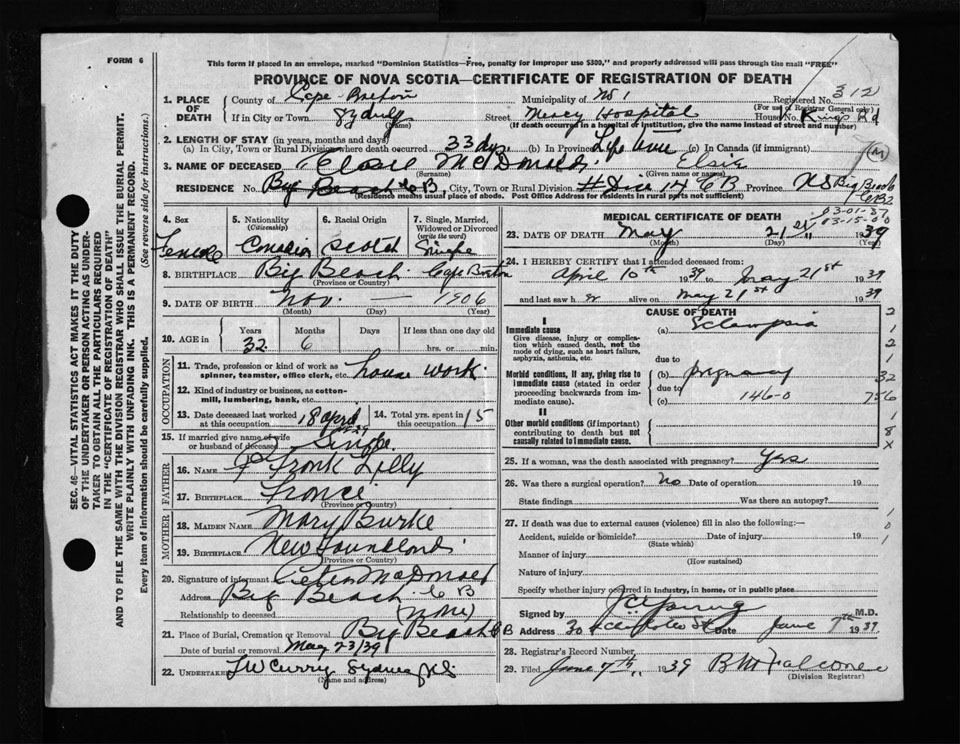 FORM 6
This form if placed in an envelope, marked "Dominion Statistics—Free, penalty for improper use $300," and properly addressed will pass through the mail "FREE"
PROVINCE OF NOVA SCOTIA—CERTIFICATE OF REGISTRATION OF DEATH
312
1. PLACE OF DEATH
County of Cape Breton Municipality of No 1 Registered No.
(For use of Registrar General only)
If in City or Town Sydney Street Mercy Hospital House No. Kings Rd
(Name) (If death occurred in a hospital or institution, give the name instead of street and number)
2. LENGTH OF STAY (in years, months and days)
(a) In City, Town or Rural Division where death occurred 33 dys. (b) In Province Life time (c) In Canada (if immigrant)
3. NAME OF DECEASED McDonald Elsie
(Surname) (Given name or names)
RESIDENCE No. Big Beach C B, City, Town or Rural Division # Dis 14 C B Province N S Big Beach
(Residence means usual place of abode. Post Office Address for residents in rural parts not sufficient)
4. Sex Female
5. Nationality (Citizenship) Canadian
6. Racial Origin Scotch
7. Single, Married, Widowed or Divorced (write the word) Single
8. BIRTHPLACE Big Beach Cape Breton
(Province or Country)
9. DATE OF BIRTH Nov. — 1906
(Month) (Day) (Year)
10. AGE in Years 32 Months 6 Days If less than one day hrs. or min.
OCCUPATION
11. Trade, profession or kind of work as spinner, teamster, office clerk, etc. house work
12. Kind of industry or business, as cotton-mill, lumbering, bank, etc.
13. Date deceased last worked at this occupation 18 April 14. Total yrs. spent in 15
15. If married give name of wife or husband of deceased Single
FATHER
16. Name Frank Lilly
17. Birthplace France
(Province or Country)
MOTHER
18. Maiden Name Mary Burke
19. Birthplace Newfoundland
(Province or Country)
20. Signature of informant Peter McDonald
Address Big Beach C B
Relationship to deceased (none)
21. Place of Burial, Cremation or Removal Big Beach C B
Date of burial or removal May 23/39
22. Undertaker J W Curry Sydney N.S.
(Name and address)
MEDICAL CERTIFICATE OF DEATH
03-01-37
03-15-00
23. DATE OF DEATH May 21st 1939
(Month) (Day) (Year)
24. I HEREBY CERTIFY that I attended deceased from:
April 10th 1939 to May 21st 1939
and last saw her alive on May 21st 1939
CAUSE OF DEATH
I
Immediate cause (a) Eclampsia
Give disease, injury or complication which caused death, not the mode of dying, such as heart failure, asphyxia, asthenia, etc.
due to
Morbid conditions, if any, giving rise to immediate cause (stated in order proceeding backwards from immediate cause). (b) pregnancy
due to
(c) 146-0
II
Other morbid conditions (if important) contributing to death but not causally related to immediate cause.
2
1
2
1
32
756
1
8
X
25. If a woman, was the death associated with pregnancy? Yes
26. Was there a surgical operation? no Date of operation 19
State findings Was there an autopsy?
27. If death was due to external causes (violence) fill in also the following:—
Accident, suicide or homicide? Date of injury 19
(State which)
Manner of injury
(How sustained)
Nature of injury
Specify whether injury occurred in industry, in home, or in public place
1
0
1
Signed by M.D.
Address 30 St Date June 7th 1939.
28. Registrar's Record Number
29. Filed June 7th, 1939
(Division Registrar)
SEC. 46—VITAL STATISTICS ACT MAKES IT THE DUTY
OF THE UNDERTAKER OR PERSON ACTING AS UNDER-
TAKER TO OBTAIN ALL THE PARTICULARS REQUIRED
IN THE "CERTIFICATE OF REGISTRATION OF DEATH"
AND TO FILE THE SAME WITH THE DIVISION REGISTRAR WHO SHALL ISSUE THE BURIAL PERMIT.
WRITE PLAINLY WITH UNFADING INK. THIS IS A PERMANENT RECORD.
Every item of information should be carefully supplied. (See reverse side for instructions.)